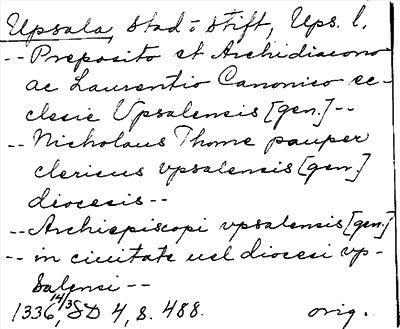 Upsala, stad o stift, Ups. l.
-- Preposito et Archidiacono
ac Laurentio Canonico ec-
clesie Upsalensis [gen.] --
-- Nicholaus Thome pauper
clericus vpsalensis [gen.]
diocesis --
-- Archiepiscopi vpsalensis [gen.]
-- in ciuitate uel diocesi vp-
salensi --
1336 14/3, SD 4, s. 488. orig.